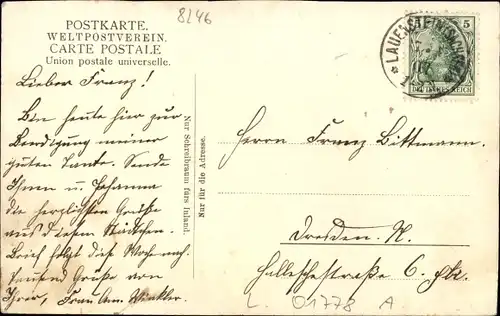 8246
POSTKARTE.
WELTPOSTVEREIN.
CARTE POSTALE
Union postale universelle.
Lieber Franz!
Bin heute hier zur
Beerdigung meiner
guten Tante. Sende
Ihnen u. Johanna
die herzlichsten Grüße
aus diesem Städtchen.
Brief folgt diese Woche nach.
Tausend Grüße von
Ihrer, Frau Am. Winkler.
Nur Schreibraum fürs Inland.
Nur für die Adresse.
5
DEUTSCHES REICH
LAUENSTEIN
Herrn Franz Bittmann.
Dresden. N.
Hallesche Straße 6.
L. 01778 A